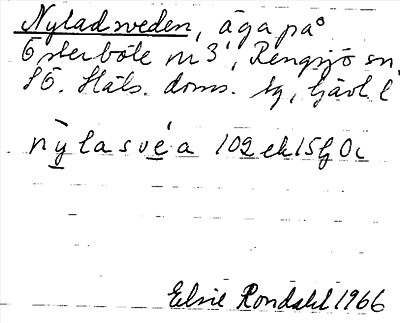 Nyladsveden, äga på
Österböle nr 3, Rengsjö sn,
SÖ. Häls. doms. tg, Gävl. l
nỳlasvéa 102 ek 15 fj Oc
Elsie Rondahl 1966